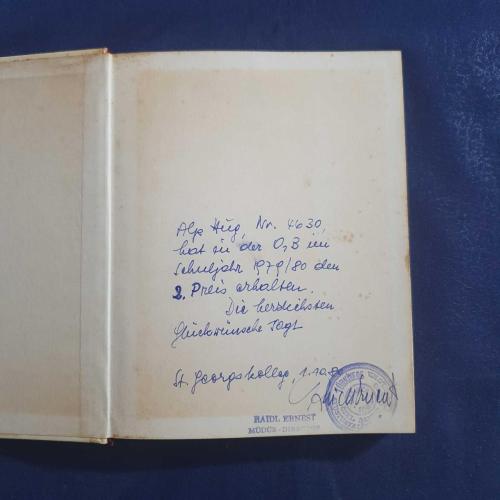 Alp Hüg, Nr. 4630,
hat in der O3B im
Schuljahr 1979/80 den
2. Preis erhalten.
Die herzlichsten
Glückwünsche sagt
St. Georgskolleg, 1.10.
RAIDL ERNEST
MÜDÜR-DIREKTOR